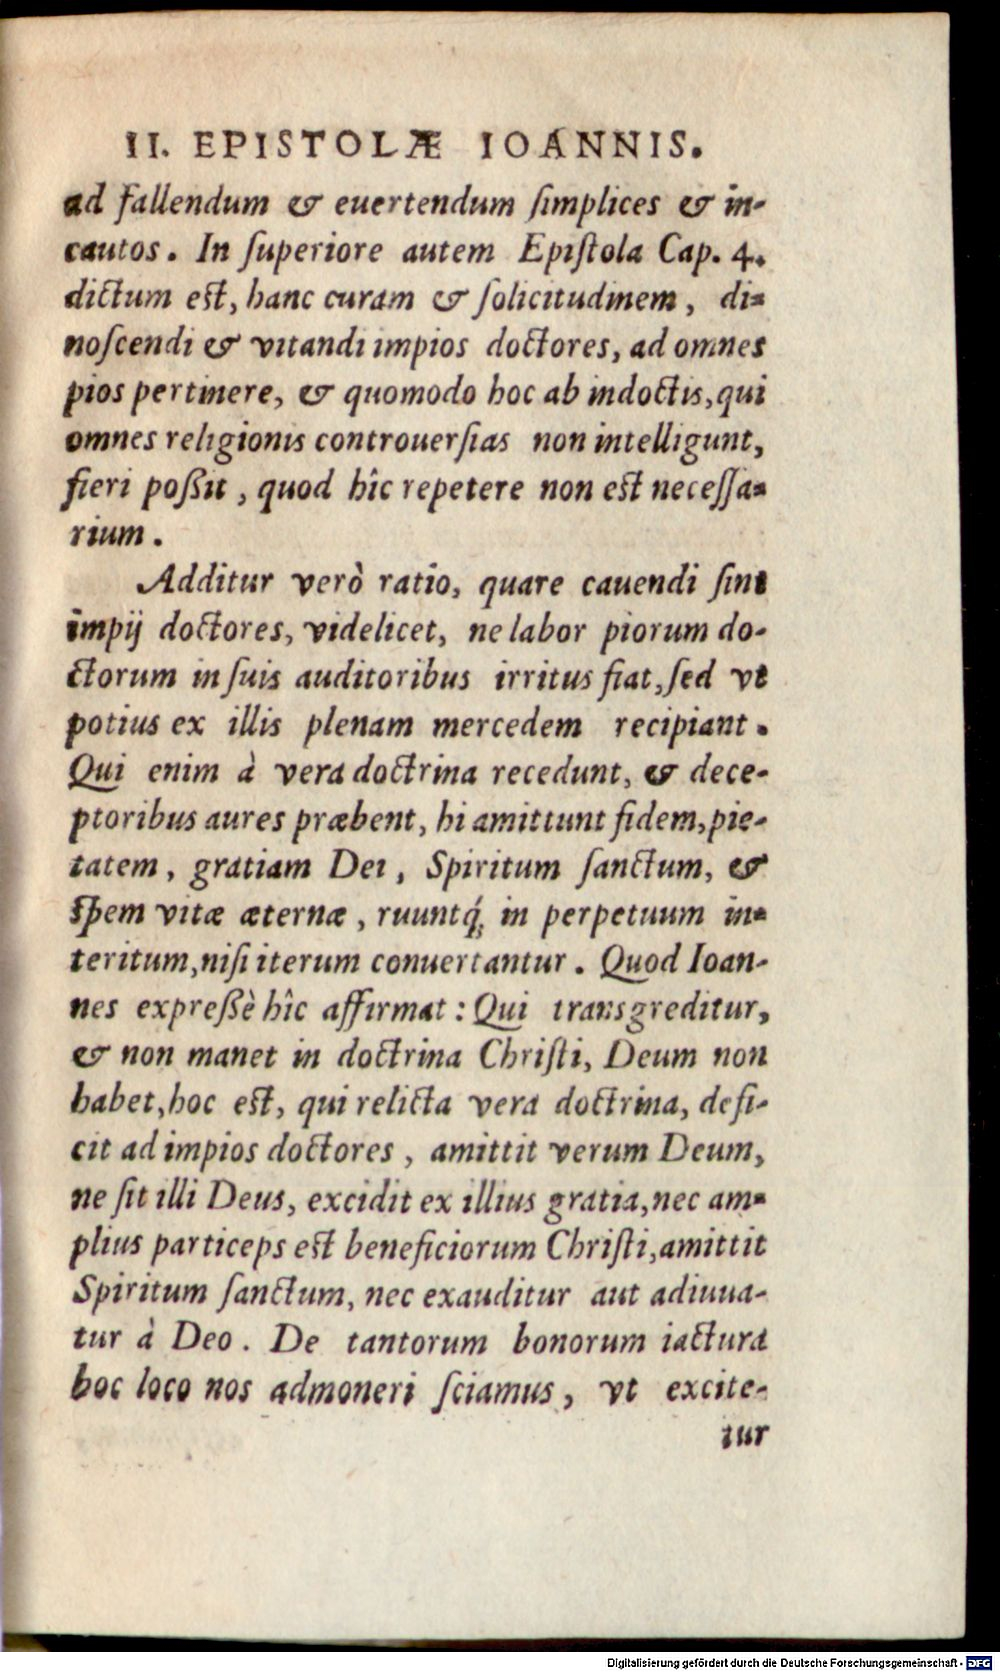 II. EPISTOLÆ IOANNIS.
ad fallendum & euertendum ſimplices & in-
cautos. In ſuperiore autem Epiſtola Cap. 4.
dictum est, hanc curam & ſolicitudinem, di-
noſcendi & vitandi impios doctores, ad omnes
pios pertinere, & quomodo hoc ab indoctis, qui
omnes religionis controuerſias non intelligunt,
fieri poßit, quod hîc repetere non est neceſſa-
rium.
Additur verò ratio, quare cauendi ſint
impij doctores, videlicet, ne labor piorum do-
ctorum in ſuis auditoribus irritus fiat, ſed vt
potius ex illis plenam mercedem recipiant.
Qui enim à vera doctrina recedunt, & dece-
ptoribus aures præbent, hi amittunt fidem, pie-
tatem, gratiam Dei, Spiritum ſanctum, &
ſpem vitæ æternæ, ruuntq́; in perpetuum in-
teritum, niſi iterum conuertantur. Quod Ioan-
nes expreßè hîc affirmat: Qui transgreditur,
& non manet in doctrina Chriſti, Deum non
habet, hoc est, qui relicta vera doctrina, defi-
cit ad impios doctores, amittit verum Deum,
ne ſit illi Deus, excidit ex illius gratia, nec am-
plius particeps est beneficiorum Chriſti, amittit
Spiritum ſanctum, nec exauditur aut adiuua-
tur à Deo. De tantorum bonorum iactura
hoc loco nos admoneri ſciamus, vt excite-
tur
Digitalisierung gefördert durch die Deutsche Forschungsgemeinschaft - DFG